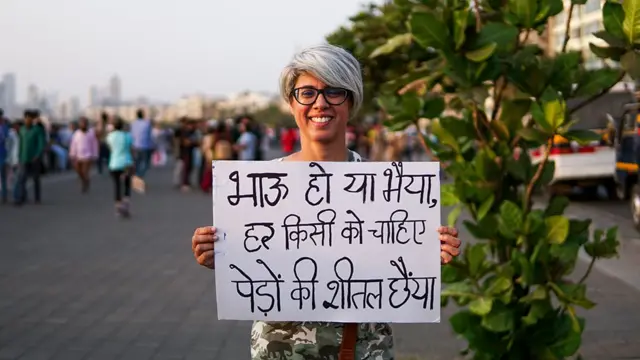 भाऊ हो या भैया,
हर किसी को चाहिए
पेड़ों की शीतल छैंया